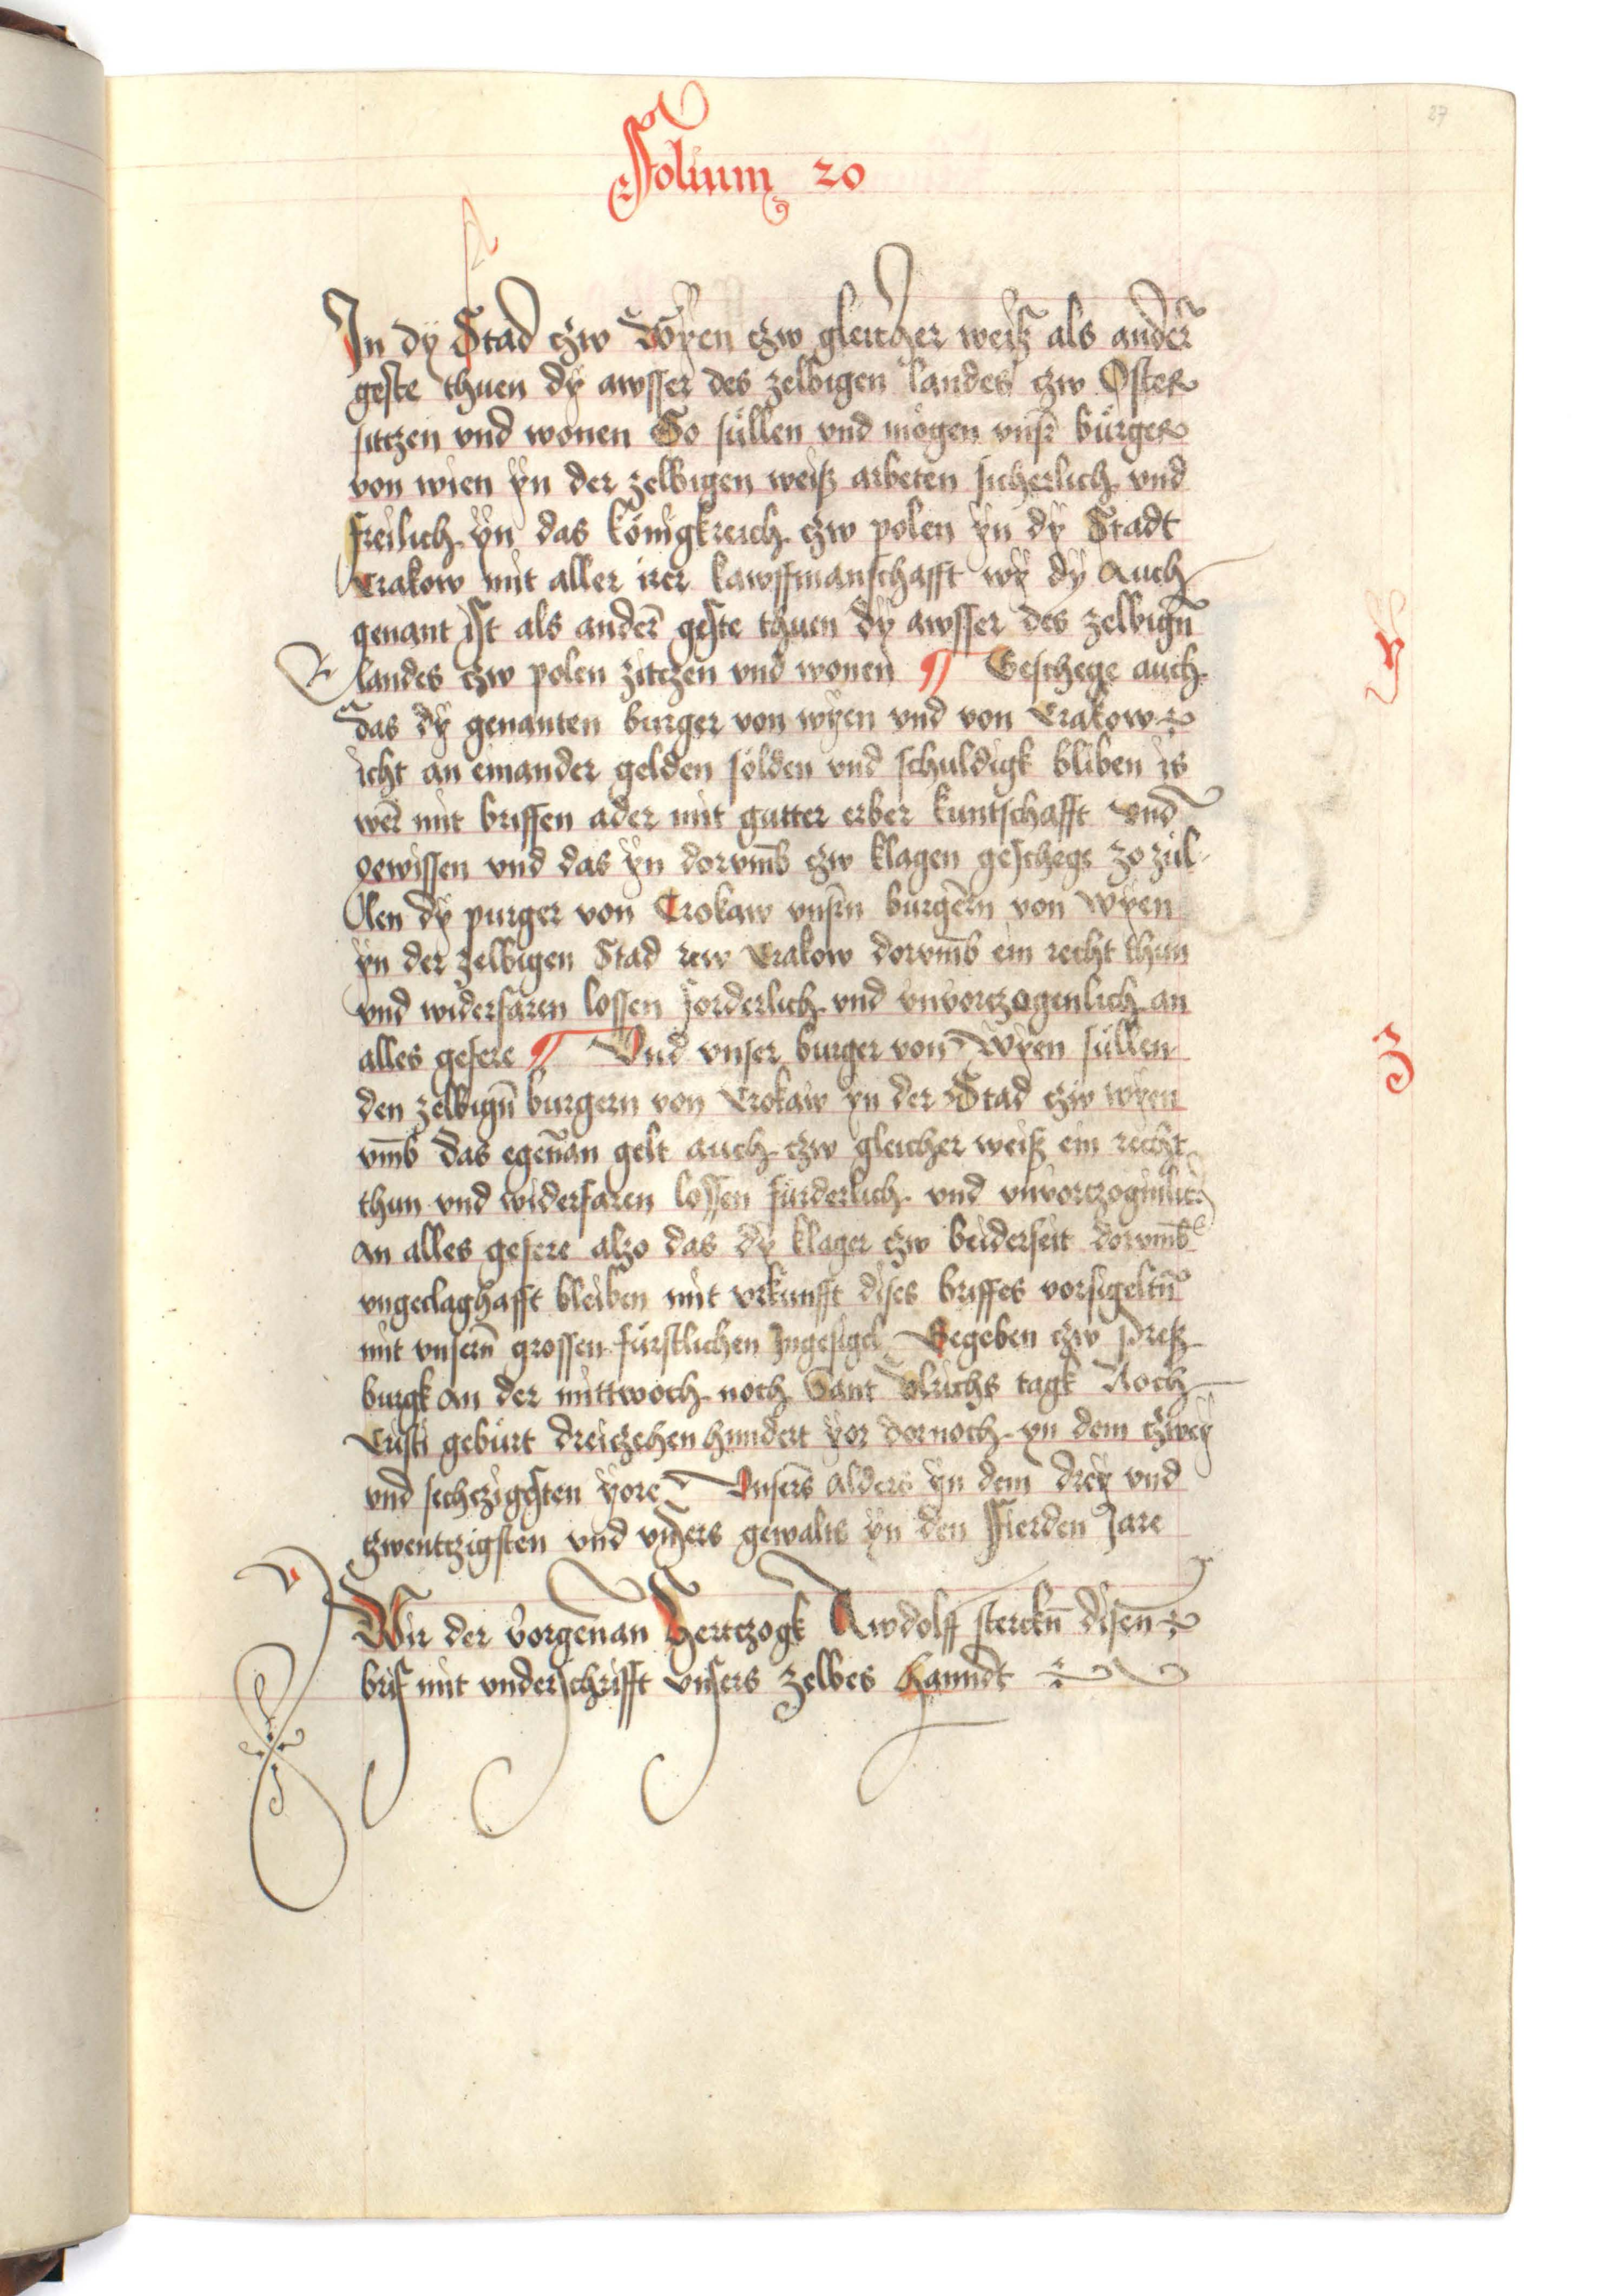 27
Folium 20
In dÿ Stad czw Wÿen czw gleicher weiß als ander̄
geste thuen dÿ awsser des zelbigen landes czw Oster
sitczen vnd wonen So süllen vnd mögen vnsr̄ bürger
von wien ÿn der zelbigen weiß arbeten sicherlich vnd
freilich ÿn das königkreich czw polen ÿn dÿ Stadt
Crakow mit aller irer kawffmanschafft wÿ dÿ Auch
genant ist als ander̄ geste thuen dÿ awsser des zelbign̄
landes czw polen zitczen vnd wonen ¶ Geschege auch
y
das dÿ genanten burger von wÿen vnd von Crakow
icht an einander gelden solden vnd schuldigk bliben is
wer̄ mit briffen ader mit gutter erber kuntschafft vnd
gewissen vnd das ÿn dorvm̄b czw klagen geschege zo zül
len dÿ purger von Crokaw vnsr̄n burger̄n von Wÿen
ÿn der zelbigen Stad czw Crakow dorvm̄b ein recht thun
vnd widerfaren lossen forderlich vnd vnvortzogenlich an
alles gefere ¶ Vnd vnser burger von Wÿen süllen
z
den zelbign̄ burgern von Crokaw ÿn der Stad czw wÿen
vm̄b das egen̄an gelt auch czw gleicher weiß ein recht
thun vnd widerfaren lossen furderlich vnd vnvortzoginlich
an alles gefere alzo das dÿ klager czw beiderseit dorvm̄b
vngeclaghafft bleiben mit vrkunfft dises briffes vorsigeltn̄
mit vnsern̄ grossen fürstlichen Ingesigel Gegeben czw Preß
burgk an der mittwoch noch Sant Vlrichs tagk Noch
Cristi geburt dreiczehen hundert ÿor dornoch ÿn dem czweÿ
vnd sechczigesten ÿore Vnser̄s alders ÿn dem dreÿ vnd
tzwentczigsten vnd vnsers gewalts ÿn den Fierden Jare
Wir der vorgen̄an Hertczogk Rwdolff sterckn̄ disen̄
brif mit vnderschrifft vnsers zelbes Hanndt